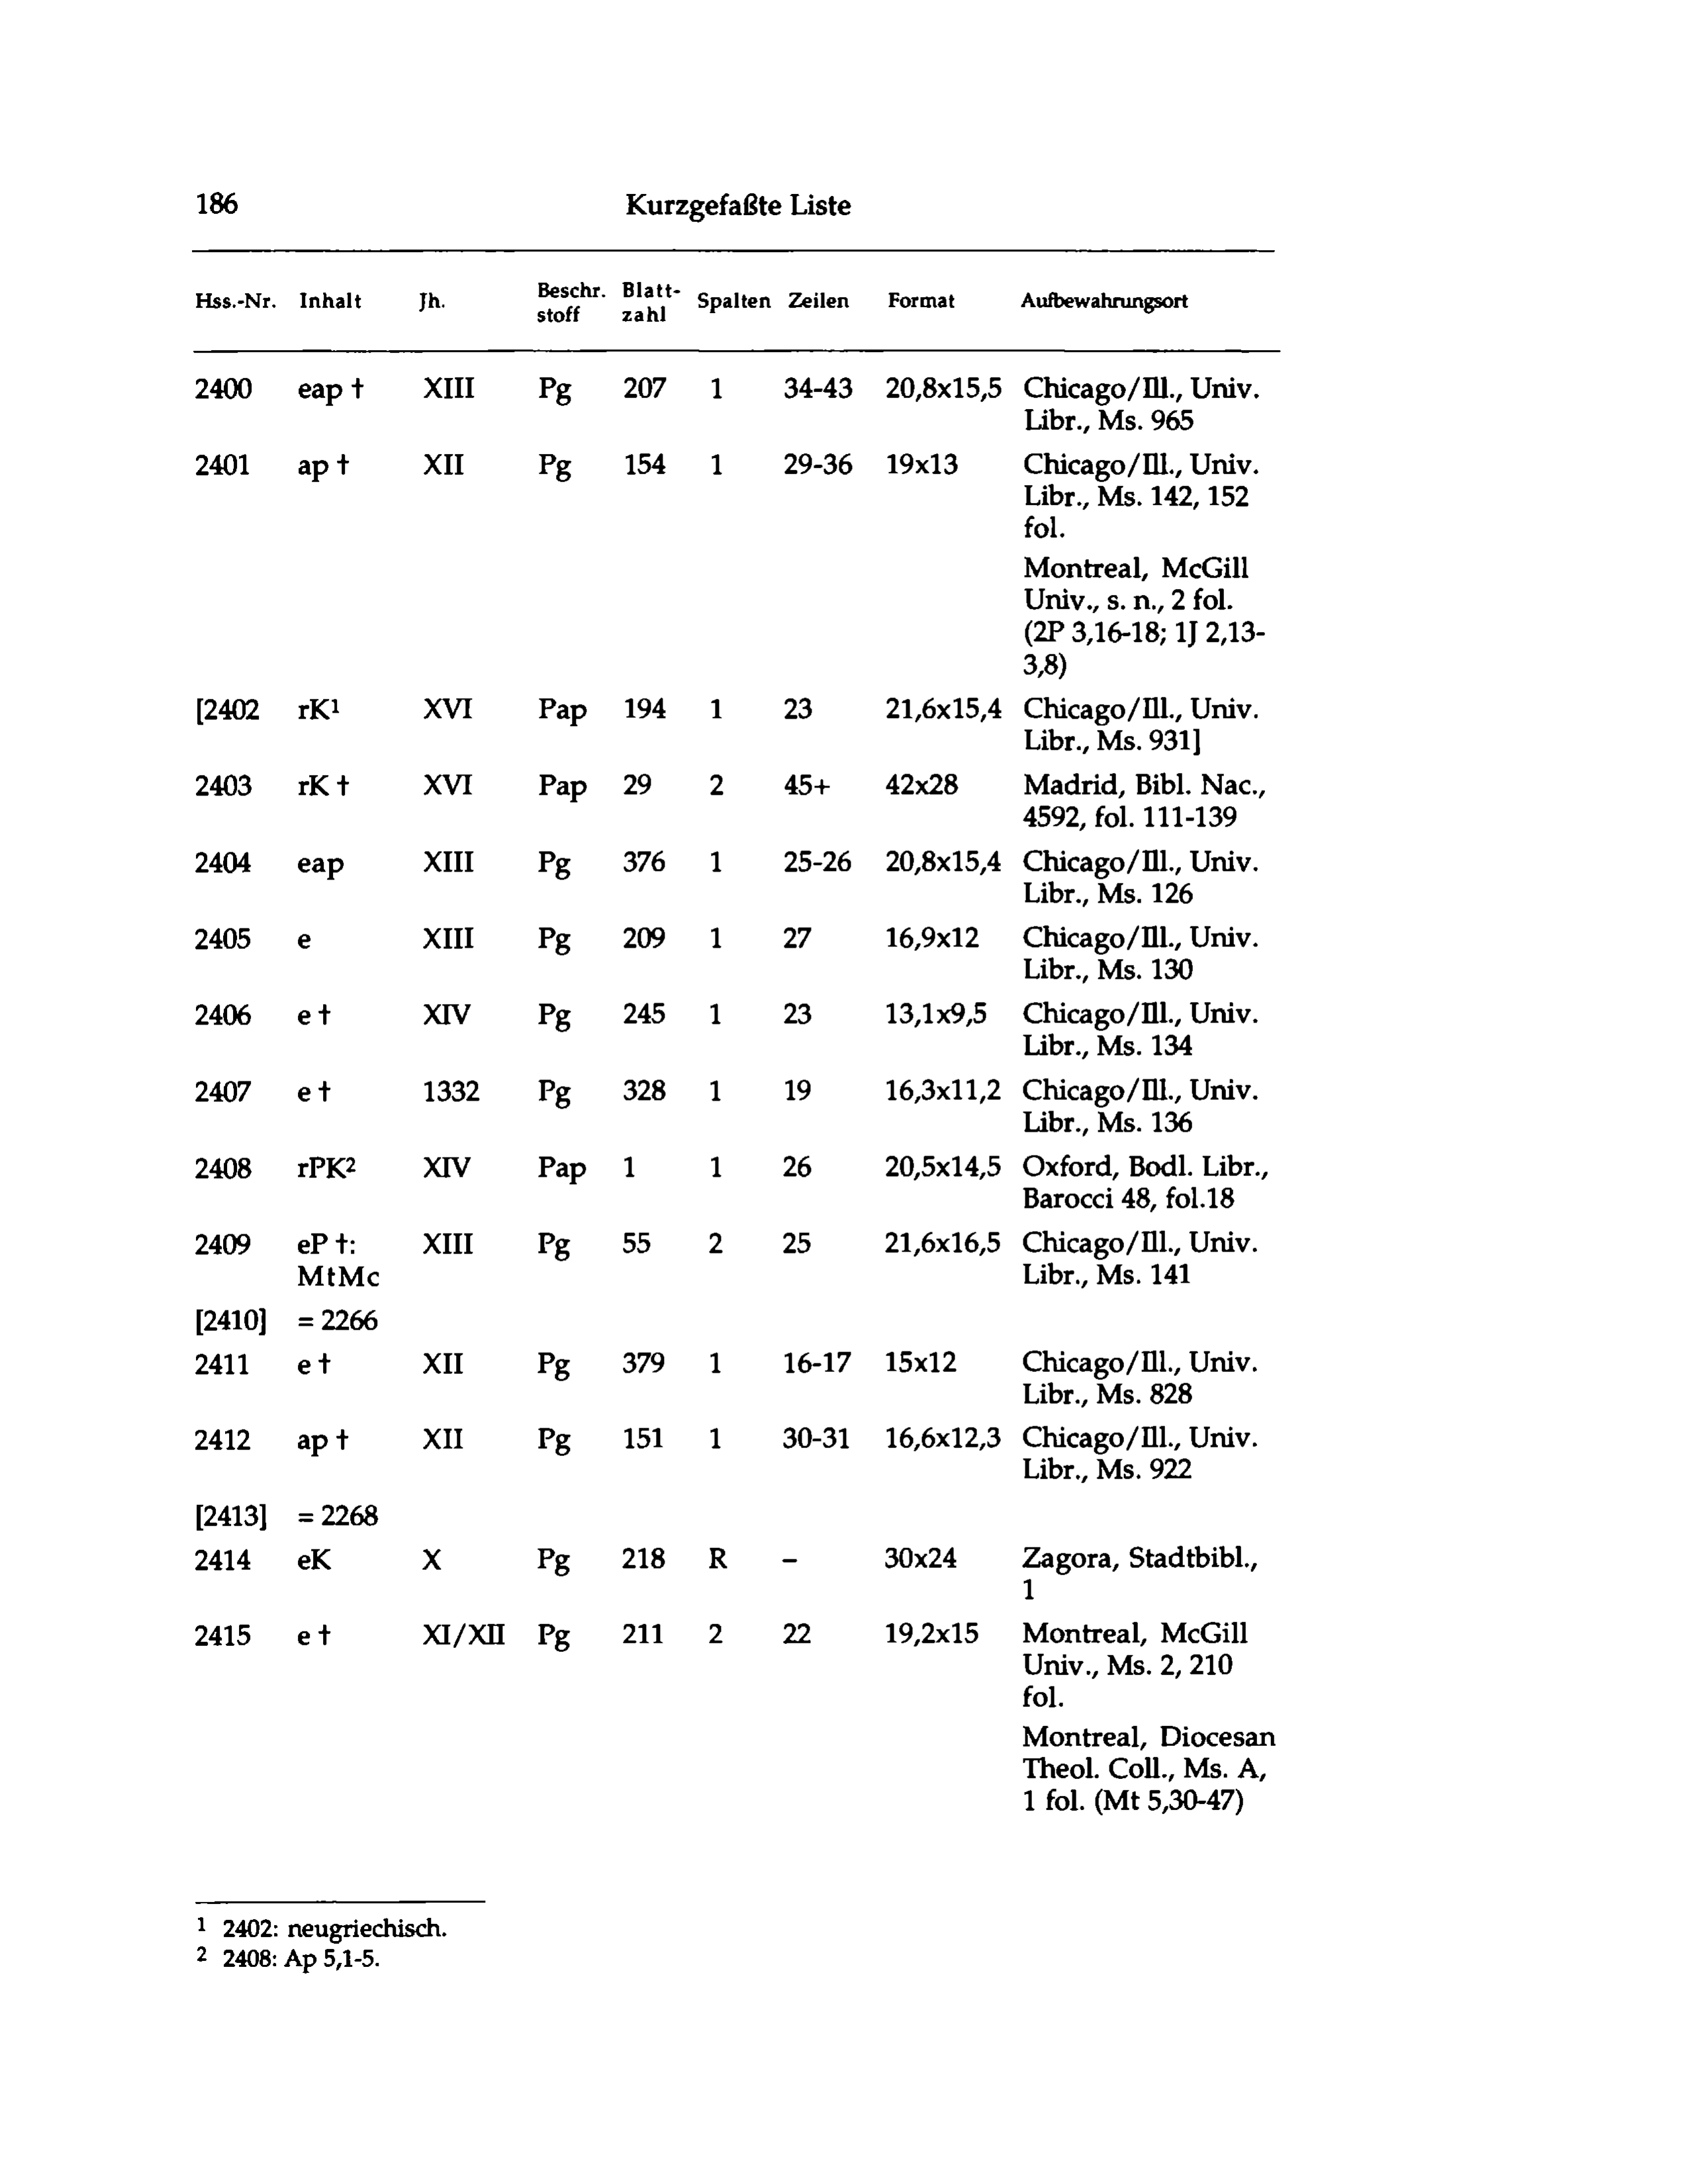 186 Kurzgefaßte Liste
Hss.-Nr. Inhalt Jh. Beschr. Blatt- Spalten Zeilen Format Aufbewahrungsort
stoff zahl
2400 eap † XIII Pg 207 1 34-43 20,8x15,5 Chicago/Ill., Univ.
Libr., Ms. 965
2401 ap † XII Pg 154 1 29-36 19x13 Chicago/Ill., Univ.
Libr., Ms. 142, 152
fol.
Montreal, McGill
Univ., s. n., 2 fol.
(2P 3,16-18; 1J 2,13-
3,8)
[2402 rK¹ XVI Pap 194 1 23 21,6x15,4 Chicago/Ill., Univ.
Libr., Ms. 931]
2403 rK † XVI Pap 29 2 45+ 42x28 Madrid, Bibl. Nac.,
4592, fol. 111-139
2404 eap XIII Pg 376 1 25-26 20,8x15,4 Chicago/Ill., Univ.
Libr., Ms. 126
2405 e XIII Pg 209 1 27 16,9x12 Chicago/Ill., Univ.
Libr., Ms. 130
2406 e † XIV Pg 245 1 23 13,1x9,5 Chicago/Ill., Univ.
Libr., Ms. 134
2407 e † 1332 Pg 328 1 19 16,3x11,2 Chicago/Ill., Univ.
Libr., Ms. 136
2408 rPK² XIV Pap 1 1 26 20,5x14,5 Oxford, Bodl. Libr.,
Barocci 48, fol.18
2409 eP †: XIII Pg 55 2 25 21,6x16,5 Chicago/Ill., Univ.
MtMc Libr., Ms. 141
[2410] = 2266
2411 e † XII Pg 379 1 16-17 15x12 Chicago/Ill., Univ.
Libr., Ms. 828
2412 ap † XII Pg 151 1 30-31 16,6x12,3 Chicago/Ill., Univ.
Libr., Ms. 922
[2413] = 2268
2414 eK X Pg 218 R – 30x24 Zagora, Stadtbibl.,
1
2415 e † XI/XII Pg 211 2 22 19,2x15 Montreal, McGill
Univ., Ms. 2, 210
fol.
Montreal, Diocesan
Theol. Coll., Ms. A,
1 fol. (Mt 5,30-47)
¹ 2402: neugriechisch.
² 2408: Ap 5,1-5.